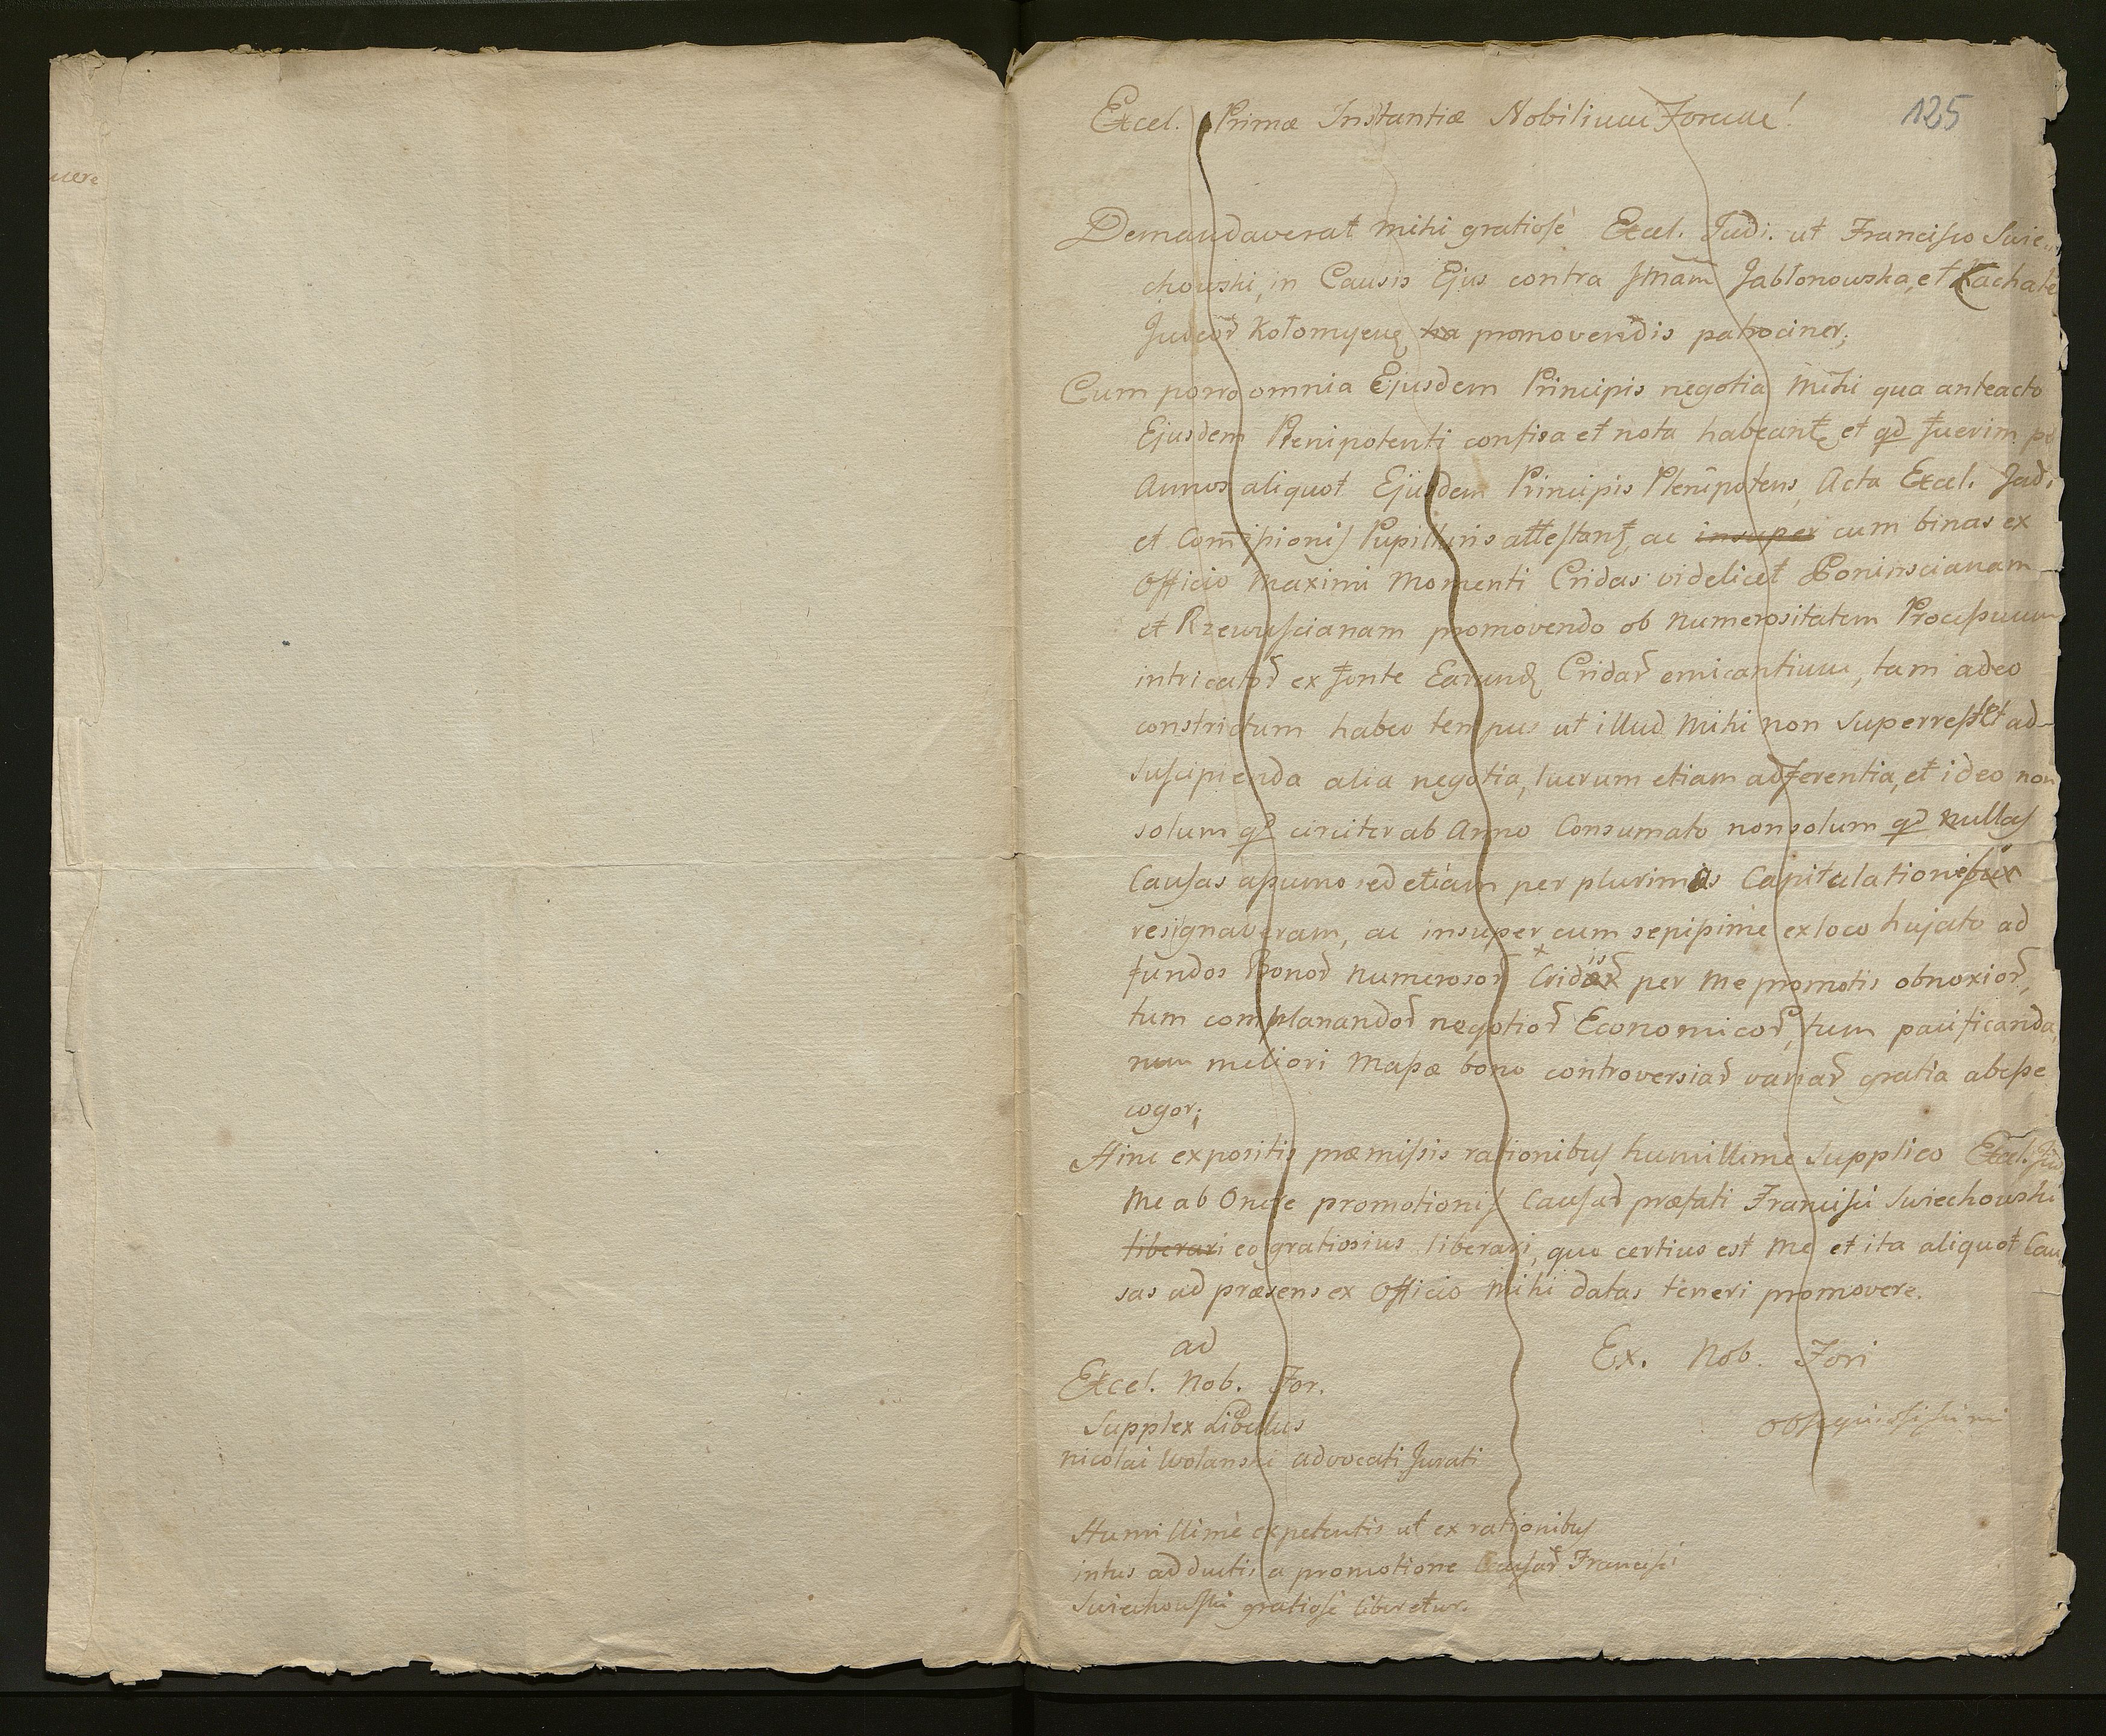 uere
125
Excel. Primæ Instantiæ Nobilium Forum!
Demandaverat mihi gratiosè Excel. Judi. ut Francisco Swie-
chowski, in Causis Ejus contra Jablonowska, et Kachale
Kołomyen promovendis patrociner;
Cum porro omnia Ejusdem Principis negotia Mihi qua anteacto
Ejusdem Plenipotenti confisa et nota habeant et qd fuerim
Annos aliquot Ejusdem Principis Plenipotens, Acta Excel. Jud.
et Comissionis Pupillaris attestant, ac insuper cum binas ex
Officio Maximi Momenti Cridas videlicet Poninscianam
et Rzewuscianam promovendo ob Numerositatem Processuum
intricator ex fonte Earund Cridar emicantium, tam adeo
constrictum habeo tempus ut illud Mihi non Superrestet ad
Suscipienda alia negotia, lucrum etiam adferentia, et ideo non
solum qd circiter ab Anno Consumato non solum qd Nullas
Causas assumo sed etiam per plurimas Capitulationes
resignaveram, ac insuper cum sepissime ex loco hujato ad
fundos Bonor Numerosor Cridis per Me promotis obnoxior,
tum complanandor negotior Economicor, tum pacificanda,
rum meliori Massæ bono controversiar variar gratia abesse
cogor;
Hinc expositis præmissis rationibus humillime Supplico Excel. Jud
Me ab Onere promotionis Causar præfati Francisci Swiechowski
liberari eo gratiosius liberari, quo certius est Me et ita aliquot Cau
sas ad præsens ex Officio Mihi datas teneri promovere.
Ex. Nob. Fori
obsequiosissimi
ad
Excel. Nob. For.
Supplex Libellus
Nicolai Wolanski Advocati Jurati
Humillimè expetentis ut ex rationibus
intus adductis a promotione Causar Francisci
Swiechowski gratiosè liberetur.